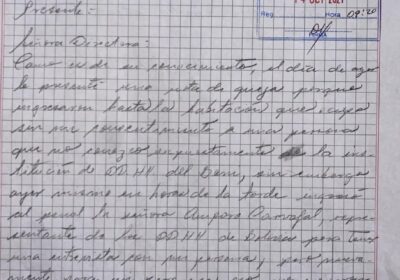 Presente:-
14 OCT 2021
Reg. Hora 09:20
Señora Directora:
Como es de su conocimiento, el día de ayer
le presenté una nota de queja porque
ingresaron hasta la habitación que ocupo
sin mi consentimiento a una persona
que no conozco supuestamente de la ins-
titución de DD.HH del Beni, sin embargo
ayer mismo en horas de la tarde ingresó
al penal la señora Amparo Carvajal, repre-
sentante de los DD HH de Bolivia para tener
una entrevista con mi persona, pero nueva-
mente